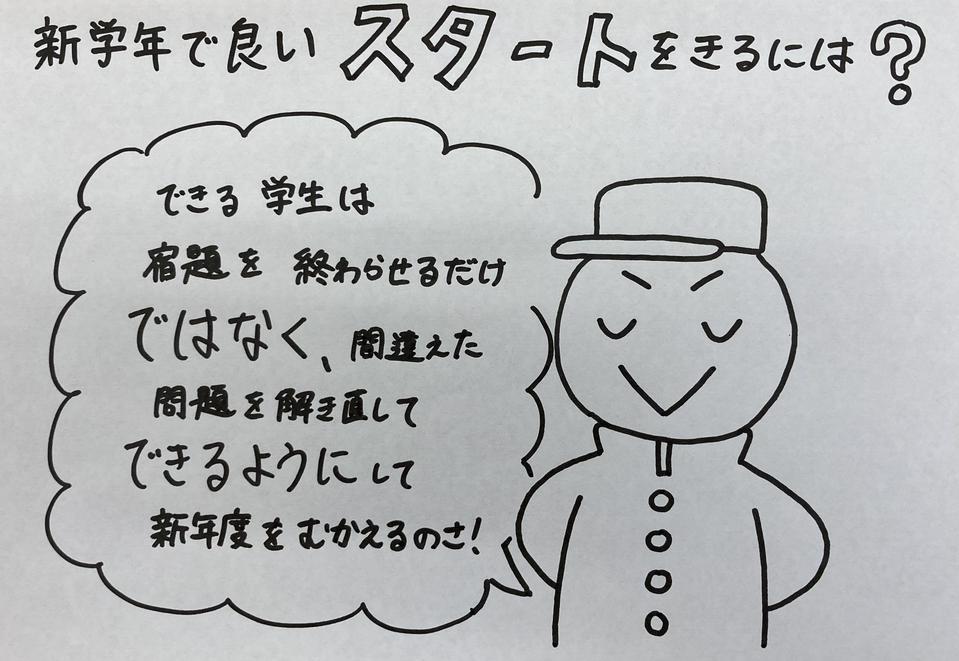 新学年で良いスタートをきるには?
できる学生は
宿題を終わらせるだけ
ではなく、間違えた
問題を解き直して
できるようにして
新年度をむかえるのさ!